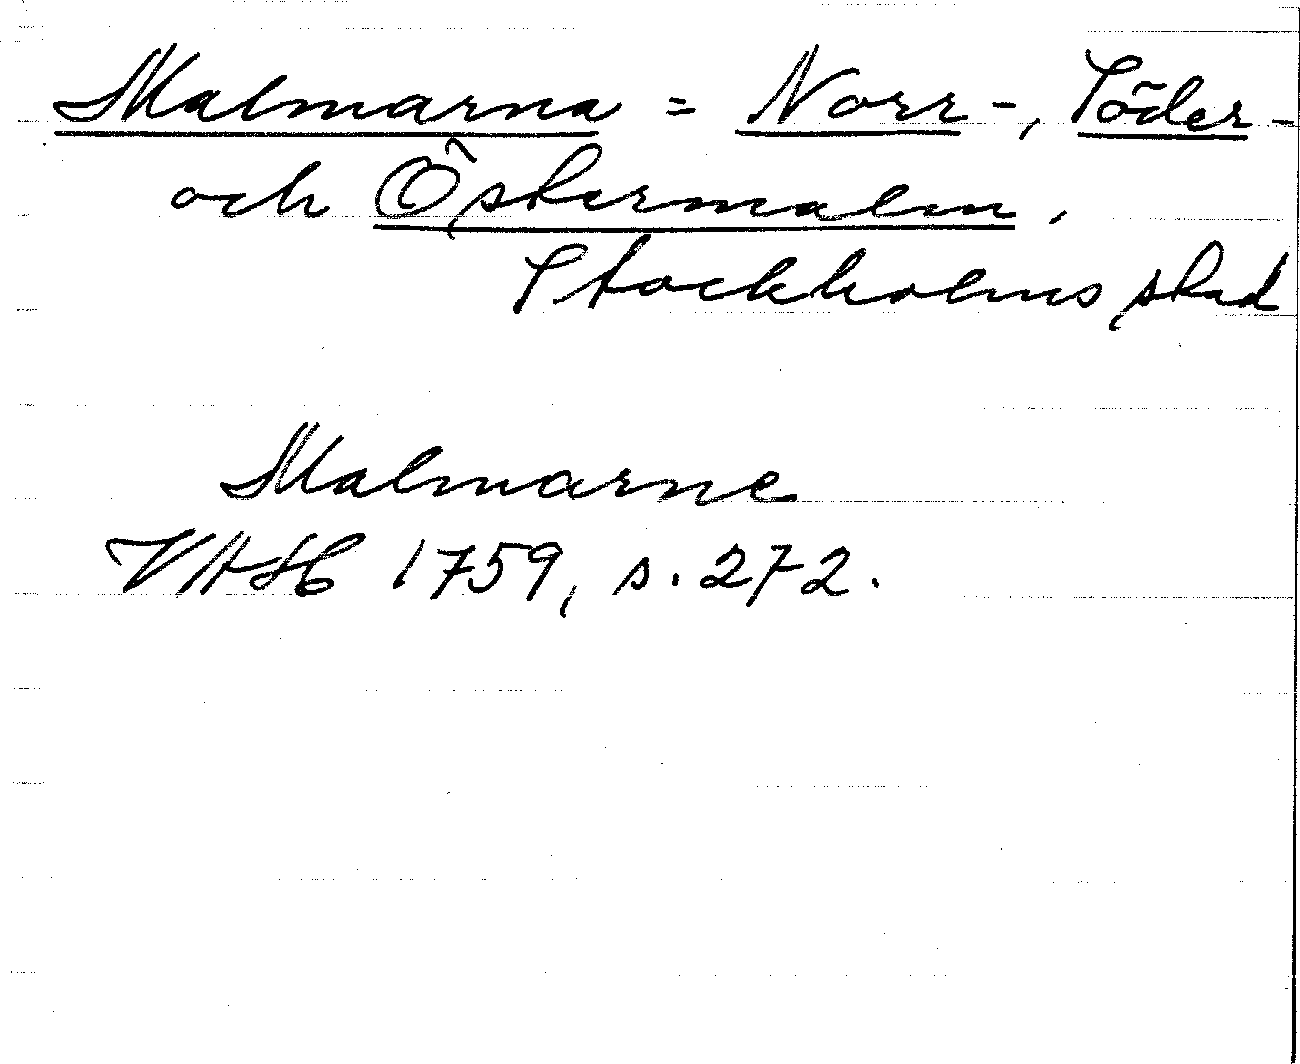 Malmarna = Norr-, Söder-
och Östermalm,
Stockholms stad
Malmarne
VAH 1759, s. 272.